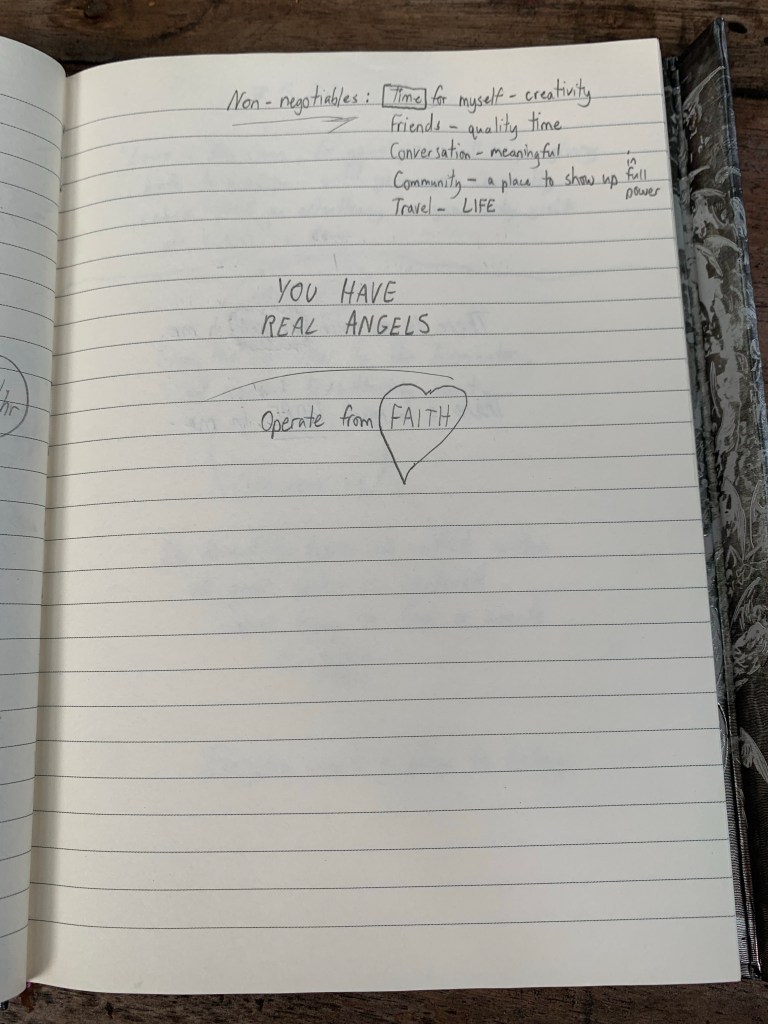 Non-negotiables: Time for myself - creativity
Friends - quality time
Conversation - meaningful
Community - a place to show up in full power
Travel - LIFE
YOU HAVE
REAL ANGELS
Operate from FAITH
/hr